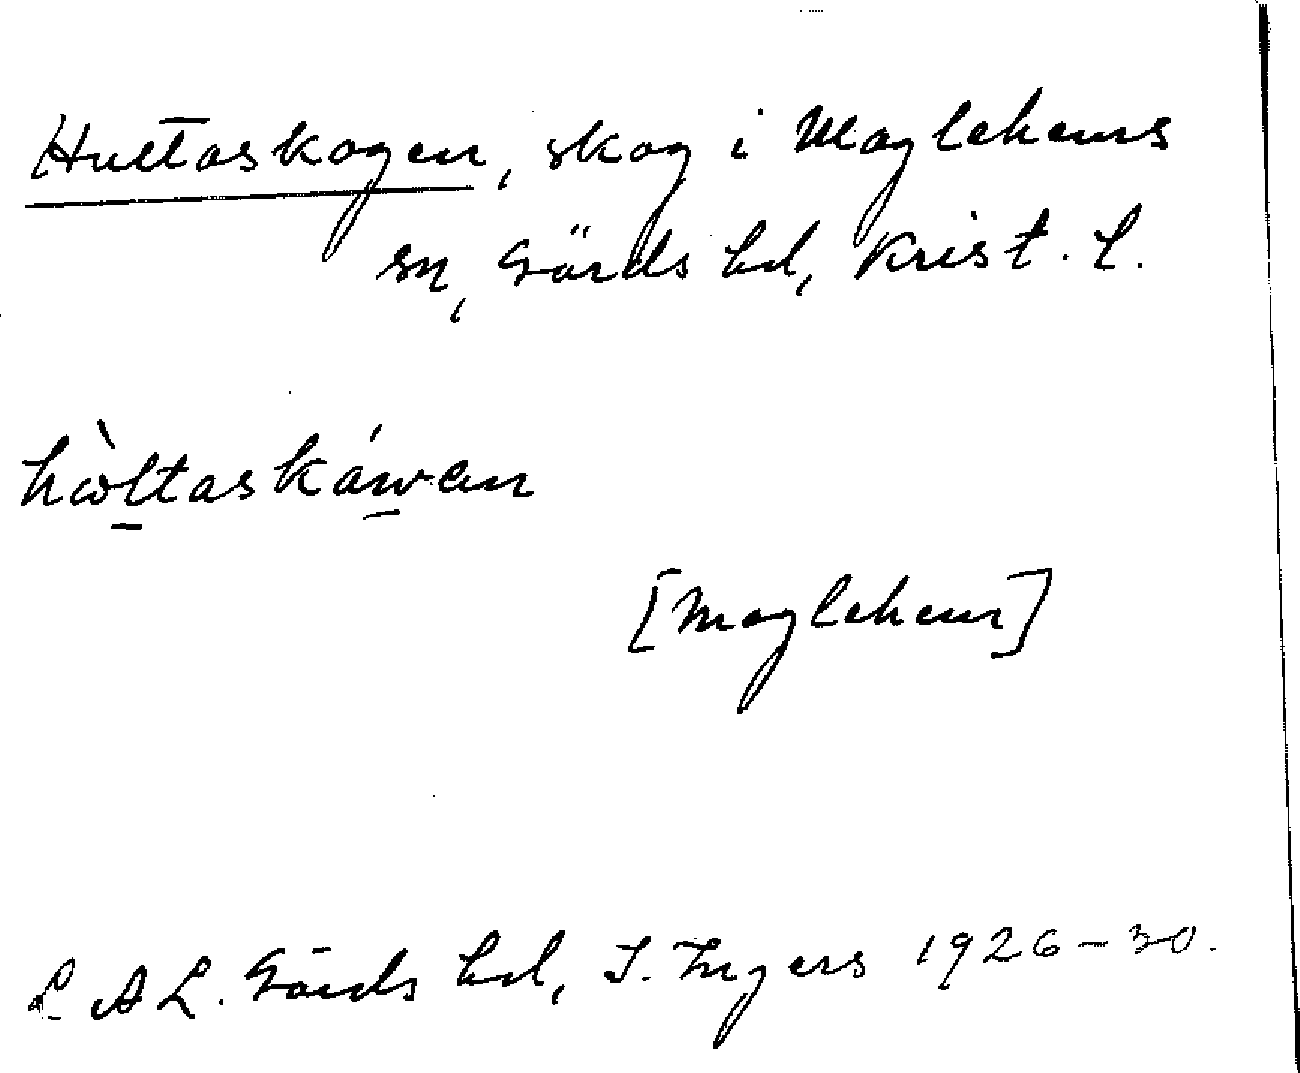 Hultaskogen, skog i Maglehems
sn, Gärds hd, Krist. l.
hὼltaskáwan
[Maglehem]
L A L. Gärds hd, I. Ingers 1926-30.